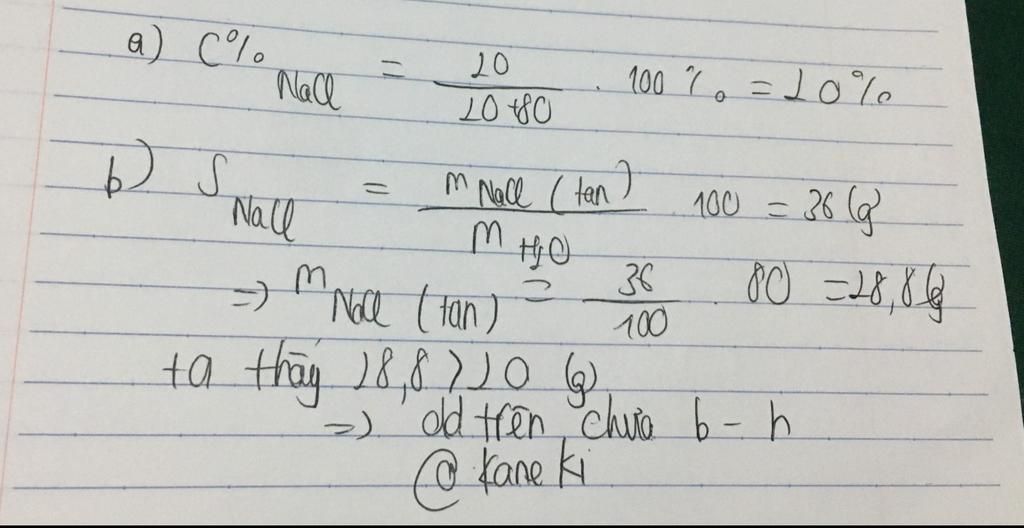 a) C%NaCl = 20/(20+80) . 100% = 20%
b) S NaCl = m NaCl (tan)/m H₂O 100 = 36 (g)
=> m NaCl (tan) = 36/100 . 80 = 28,8 (g)
ta thấy 28,8 > 20 (g)
=> dd trên chưa b-h
@ Kane Ki